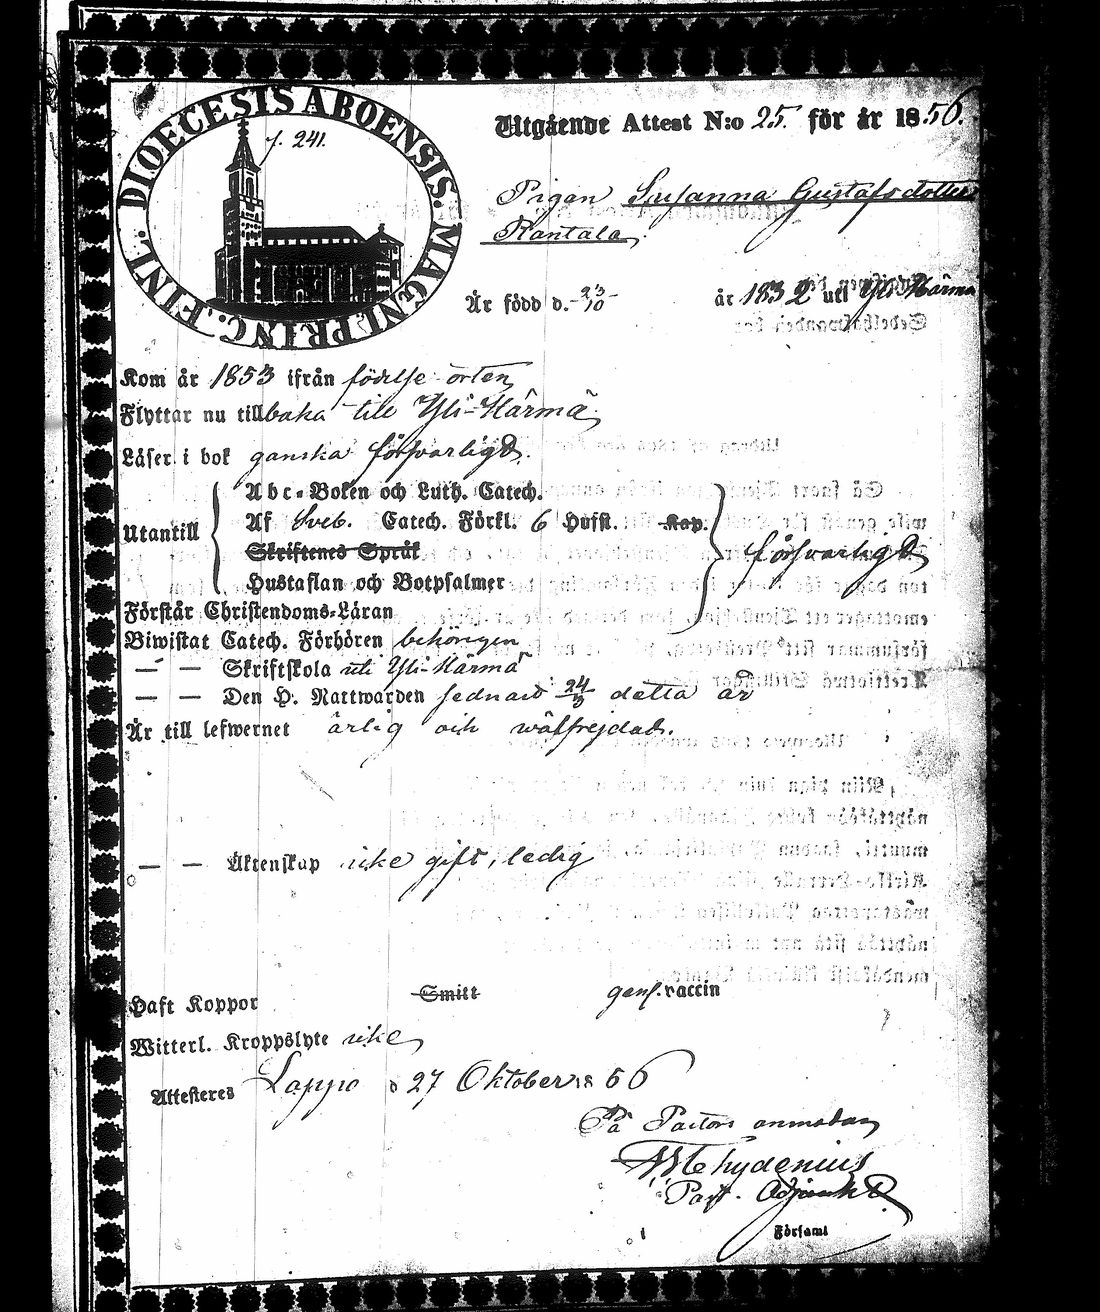 DIOECESIS ABOENSIS. MAGNI PRINC. FINL.
p. 241.
Utgående Attest N:o 25. för år 1856.
Pigan Susanna Gustafsdotter
Rantala,
Är född d. 23/10 år 1832 uti Yli-Härmä
Kom år 1853 ifrån födelse orten,
Flyttar nu tillbaka till Yli-Härmä,
Läser i bok ganska försvarligt.
Utantill
Abc-Boken och Luth. Catech.
Af Sveb. Catech. Förkl. 6 Hufst. Kap.
Skriftenes Språk
Hustaflan och Botpsalmer
försvarligt
Förstår Christendoms-Läran
Biwistat Catech. Förhören behörigen
— — Skriftskola uti Yli-Härmä
— — Den H. Nattwarden sednast 24/3 detta år
Är till lefwernet ärlig och wälfrejdad.
— — Äktenskap icke gift, ledig
Haft Koppor Smitt genf. vaccin
Witterl. Kroppslyte icke,
Attesteres Lappo d 27 Oktober 1856
På Pastors anmodan
Chydenius
Past. Adjunkt
Församl